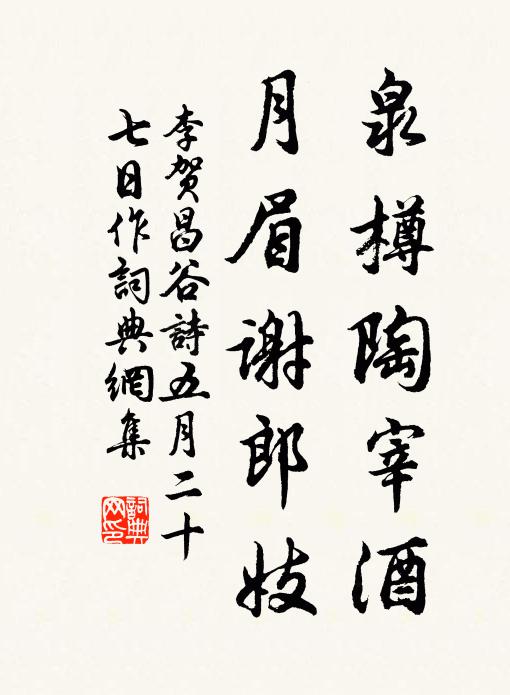 泉樽陶宰酒
月眉谢郎妓
李贺昌谷詩五月二十
七日作詞典網集
詞典
网印